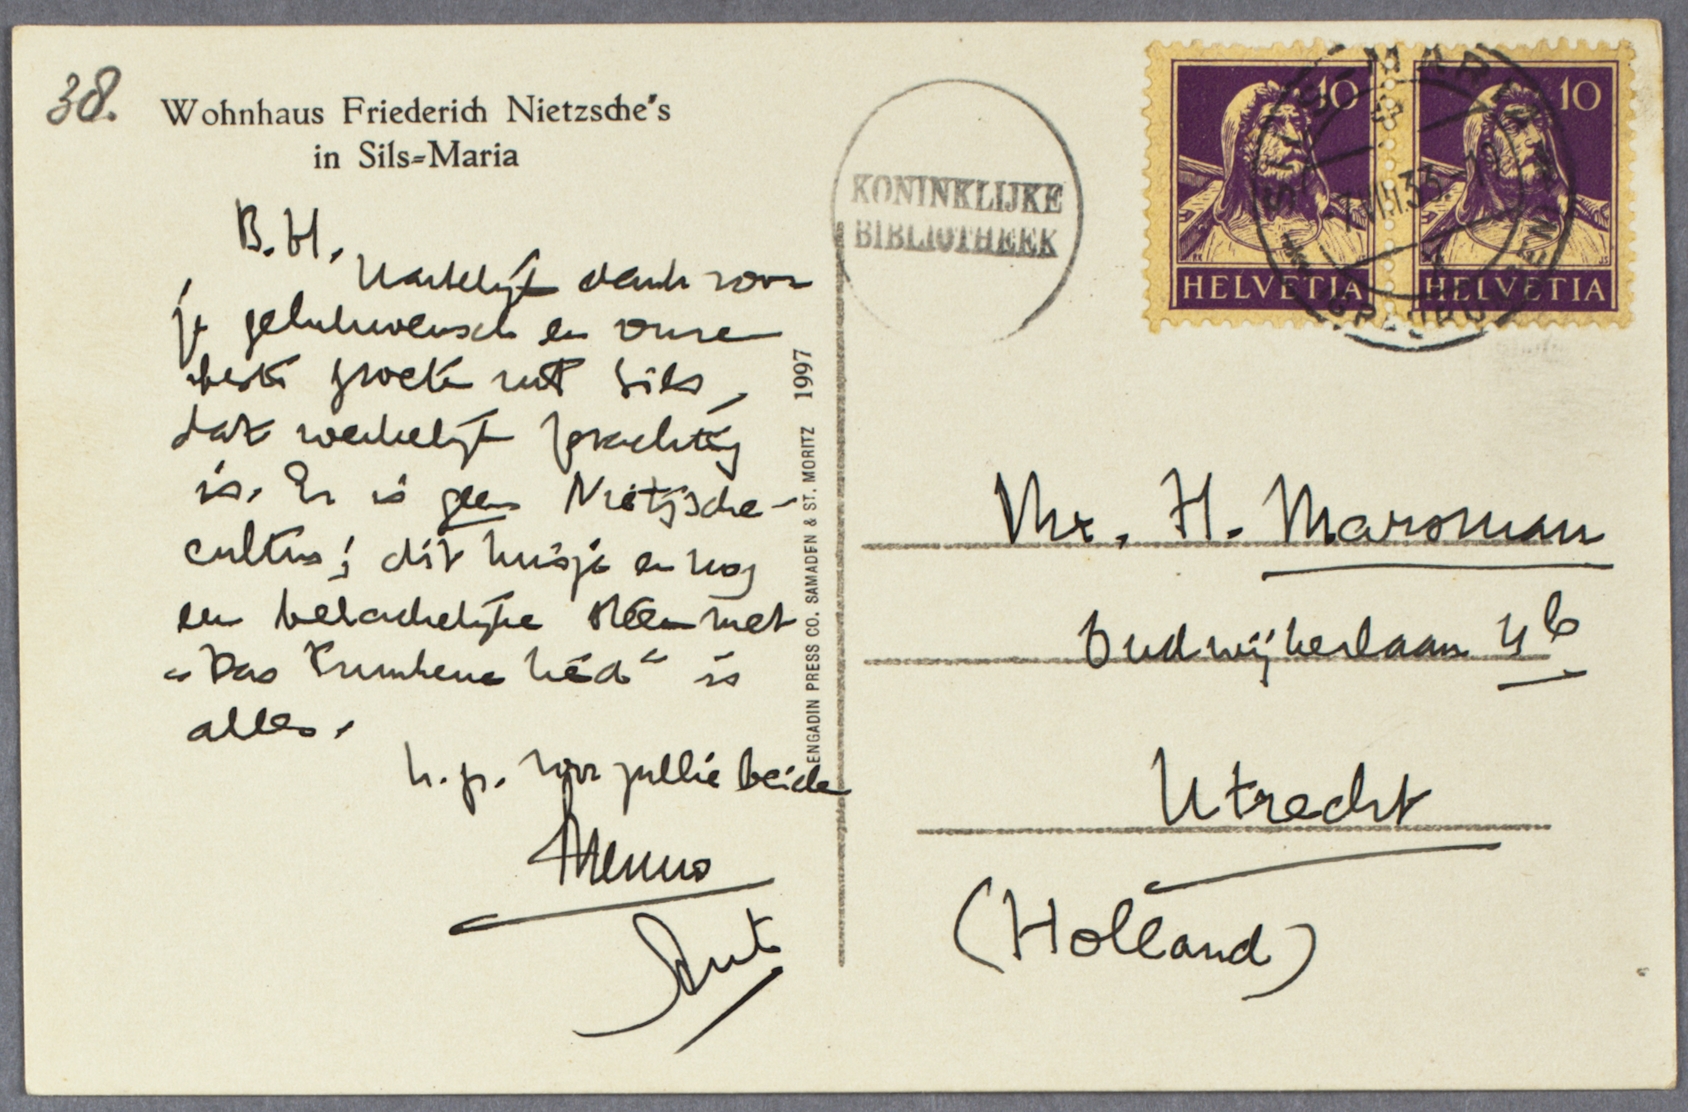 38.
Wohnhaus Friederich Nietzsche's
in Sils-Maria
B.H.
Hartelijk dank voor
je gelukwensch en onze
beste groeten uit Sils,
dat werkelijk prachtig
is. Er is geen Nietzsche-
cultus; dit huisje en nog
een belachelijke steen met
"Das trunkene Lied" is
alles.
h.gr. voor jullie beide
Menno
Ant
ENGADIN PRESS CO. SAMADEN & ST. MORITZ 1997
KONINKLIJKE
BIBLIOTHEEK
10
HELVETIA
10
HELVETIA
SILS-MARIA
Mr. H. Marsman
Oudwijkerlaan 4b
Utrecht
(Holland)